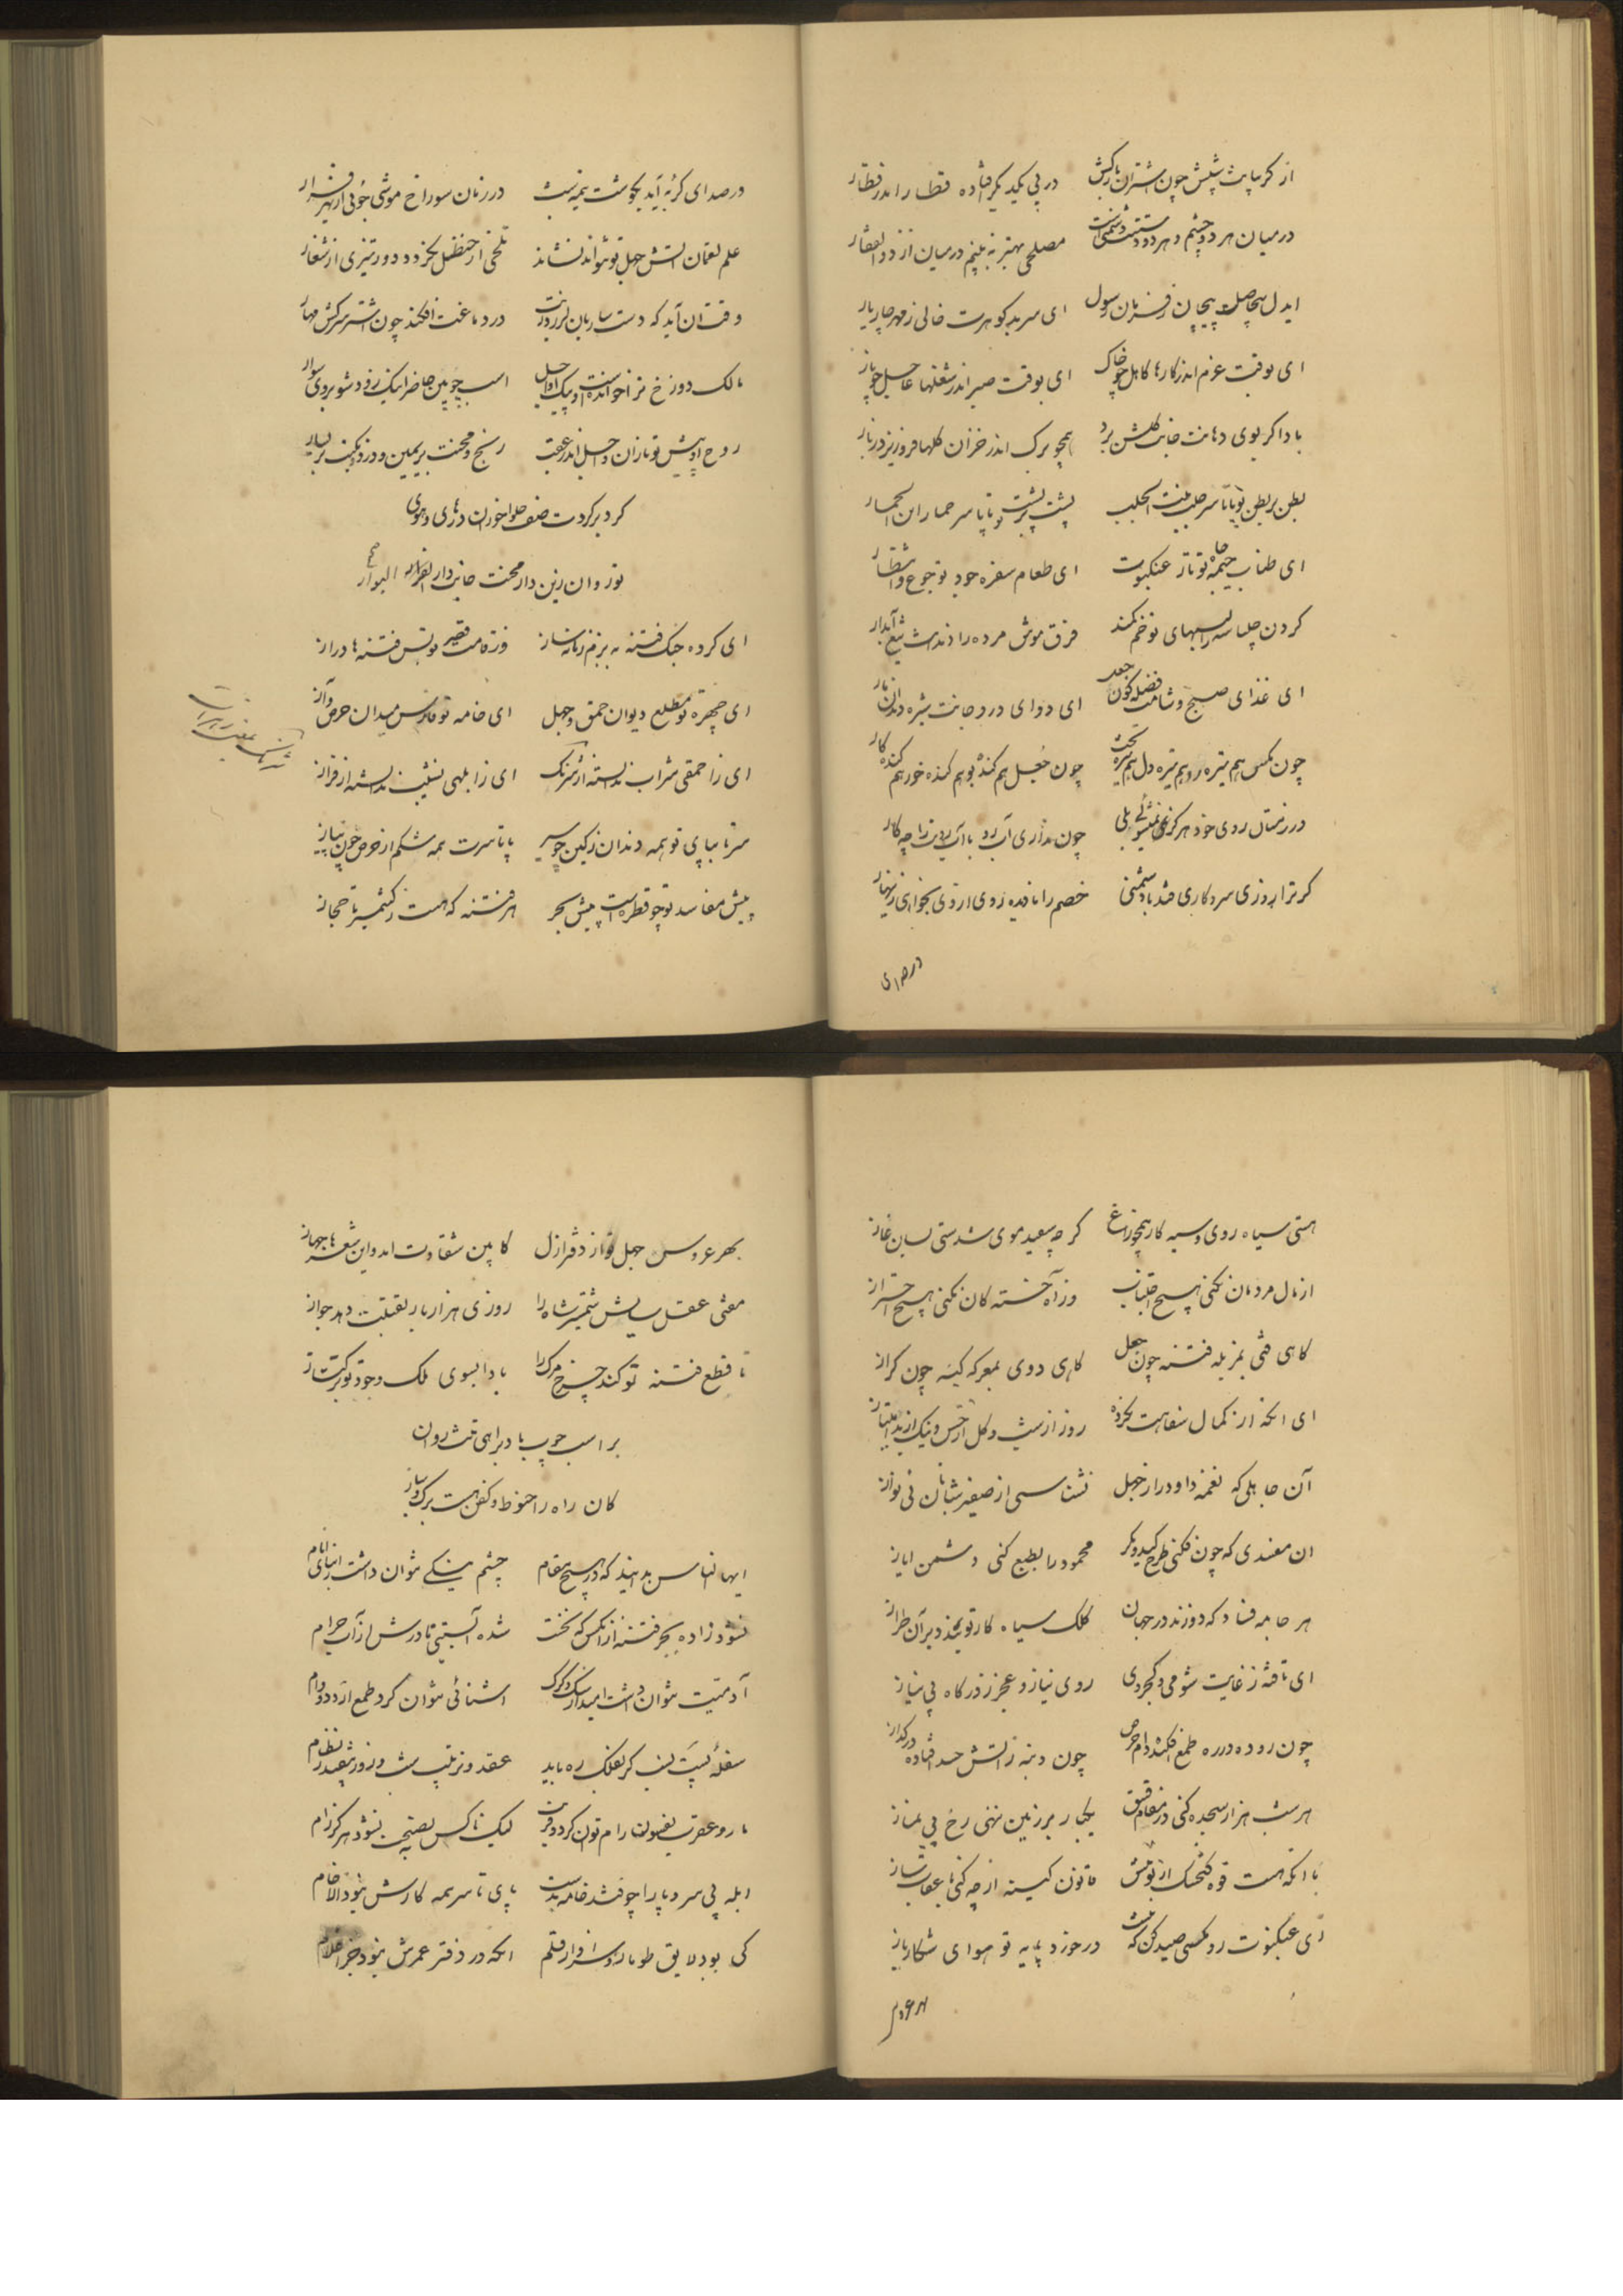 از کریبانت شپش چون شتران بارکش در پی یکدیگر افتاده قطار اندر قطار
درمیان هر دو چشم و هر دو دستت دشمنی است مصلحی بهتر نه بینم درمیان از ذوالفقار
ایدل بیحاصلت پیچان ز فرمان رسول ای سر بدکوهرت خالی ز مهر چار یار
ای بوقت عزم اندر کارها کاهل چو خاک ای بوقت صبر اندر شغلها عاجل چو باد
باد اکر بوی دهانت جانب کلشن برد همچو برک اندر خزان کلها فرو ریزد ز بار
بطن بر بطن تو پا تا سر جلب بنت الجلب پشت بر پشت تو پا تا سر حمار ابن الحمار
ای طناب خیمه جاه تو تار عنکبوت ای طعام سفره جود تو جوع و انتظار
کردن چلپاسه را لبهای تو خم کمند فرق موش مرده را دندانت تیغ آبدار
ای غذای صبح و شامت فضله کون جعل ای دوای درد جانت شیره دندان مار
چون مکس هم تیره رو هم تیره دل هم تیره بخت چون جعل هم کنده بو هم کنده خور هم کنده کار
در زمستان روی خود هرکز نمیشوئی بلی چون نداری آب رو با آب رو ترا چه کار
کر ترا روزی سر و کاری فتد با دشمنی خصم را نادیده روی از وی بخواهی زینهار
درصدای
درصدای کربه آید بکوشت نیمشب در زمان سوراخ موشی جوئی از بهر فرار
علم لقمان آتش جهل تو نتواند نشاند تلخی از حنظل نخیزد دور تیزی از شغار
وقت آن آید که دست ساربان روزت در دماغت افکند چون اشتر سرکش مهار
مالک دوزخ ترا خوانده است و پیک او اجل اسب چوبین حاضر اینک زود شو بروی سوار
روح اد پیش تو تازان و اجل اندر عقب رنج و محنت بر یمین و درد و نکبت بر یسار
کرد بر کردت صف حلواخوران در های و هوی
تو روان زین دار محنت جانب دار البوار
ای کرده جنک فتنه به بزم زمانه ساز وز قامت قصیر تو بس فتنها دراز
ای چهره تو مطلع دیوان حمق و جهل ای خامه تو فارس میدان حرص و آز
ای از احمقی شراب ندانسته از شرنک ای ز ابلهی نشیب ندانسته از فراز
سر تا بپای تو همه دندان ز کین چو سیر پا تا سرت همه شکم از حرص چون پیاز
پیش مفاسد تو چو قطره است پیش بحر هر فتنه که هست ز کشمیر تا حجاز
هستی سیاه روی و سیه کار همچو زاغ کر چه سپید موی شدستی بسان غاز
از مال مردمان نکنی هیچ اجتناب وز آه خستکان نکنی هیچ احتراز
کاهی فتی بمزبله فتنه چون جعل کاهی دوی بمعرکه کینه چون کراز
ای انکه از کمال سفاهت نکرده روز از شب و کل از خس و نیک از بد امتیاز
آن جاهلی که نغمه داود را ز جهل نشناسی از صفیر شبانان نی نواز
ان مفسدی که چون فکنی طرح کید و مکر محمود را بطبع کنی دشمن ایاز
هر جامه فساد که دوزند در جهان کلک سیاه کار تو بندد بر آن طراز
ای تافته ز غایت شومی و کجروی روی نیاز و عجز ز درکاه بی نیاز
چون روده در ره طمع افکنده دام حرص چون دنبه ز آتش حسد افتاده در کداز
هر شب هزار سجده کنی در مقام فسق یکبار بر زمین ننهی رخ پی نماز
با انکه هست قوت کنجشک از تو بیش قانون کینه از چه کنی با عقاب ساز
ای عنکبوت رو مکسی صید کن که نیست در خورد پایه تو هوای شکار باز
بهر عروس
بهر عروس جهل تو از دفتر ازل کابین شقاوت امد و این شعرها جهاز
مفتی عقل سایش شمشیر شاه را روزی هزار بار بقتلت دهد جواز
تا قطع فتنه تو کند چرخ مرک را بادا بسوی ملک وجود تو ترکتاز
بر اسب چوب باد براهی تنت روان
کان راه را حنوط و کفن هست برک و ساز
ایها الناس بدانید که در هیچ مقام چشم نیکی نتوان داشت ز ابنای انام
نشود زاده بجز فتنه از انکس که نخست شده آبستنی مادرش از آب حرام
آدمیت نتوان داشت امید از سک و کرک اشنائی نتوان کرد طمع از دد و دام
سفله پست لئیم کر بفلک ره یابد عقد و ترتیب شب و روز بیفتد ز نظام
مار و عقرب بفسون رام توان کرد و لیک ناکس بنصیحت نشود هرکز رام
ابله بی سر و پا را چو فتد خامه بدست پای تا سر همه کارش نبود الا خام
کی بود لایق طومار و سزاوار قلم انکه در دفتر عمرش نبود جز اغلام